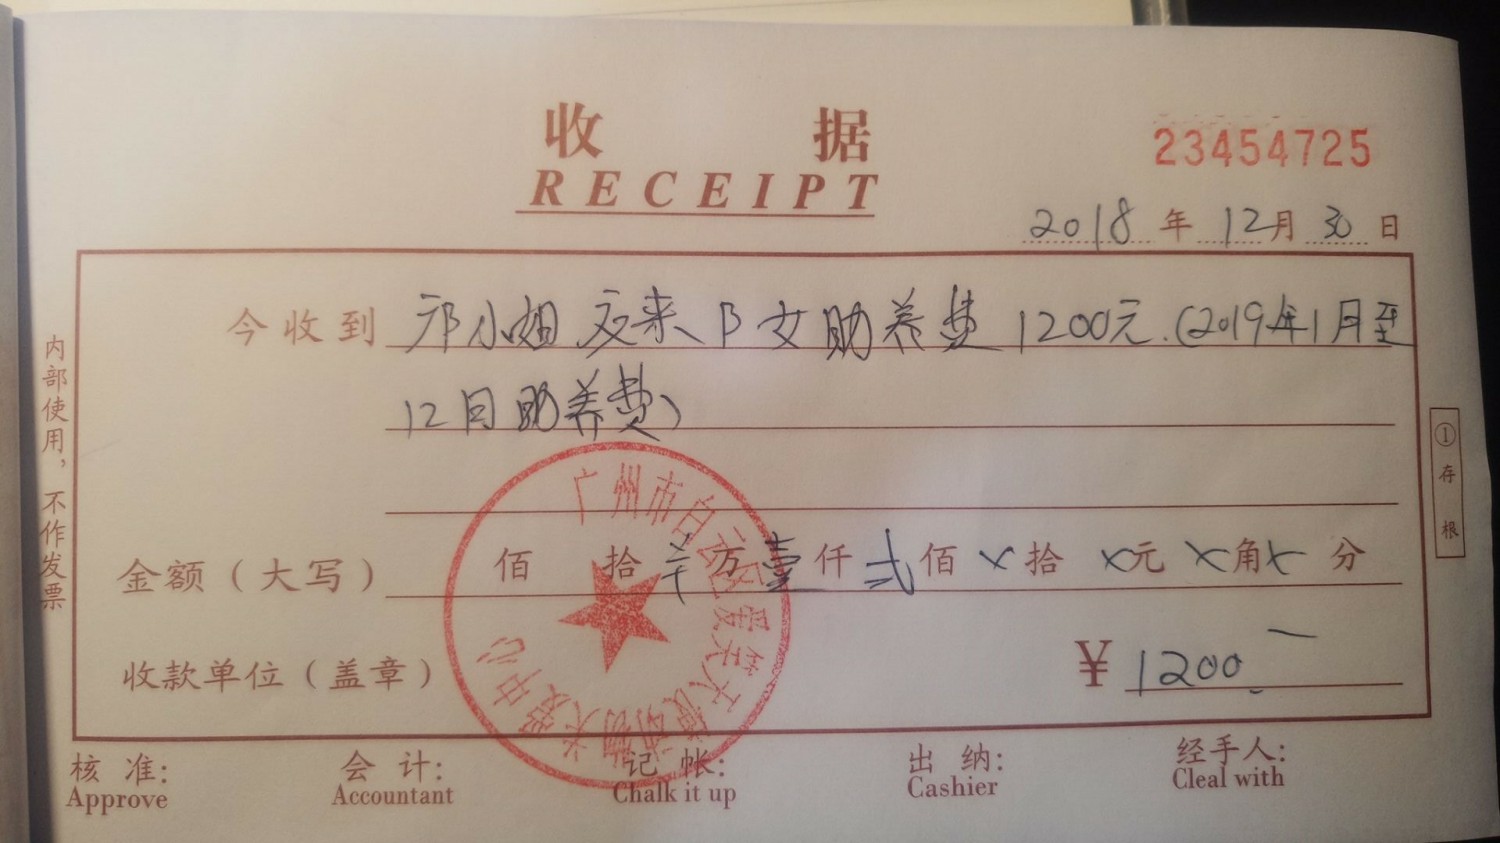 收 据
RECEIPT
23454725
2018 年 12 月 30 日
今收到 邝小姐 交来 P 女助养费 1200元.(2019年1月至
12日助养费)
金额（大写） 佰 拾 万 壹 仟 弍 佰 × 拾 × 元 × 角 × 分
收款单位（盖章） ¥ 1200
广州市白云区爱 天使 关爱中心
内部使用，不作发票
① 存根
核 准: 会 计: 记 帐: 出 纳: 经手人:
Approve Accountant Chalk it up Cashier Cleal with